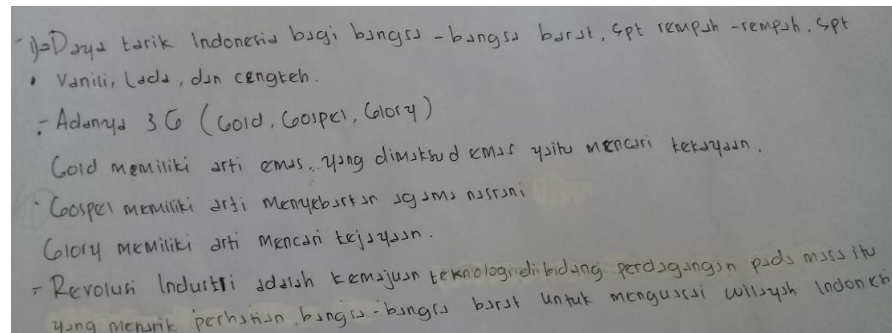 1)→Daya tarik Indonesia bagi bangsa -bangsa barat, spt rempah -rempah, spt
• Vanili, Lada, dan cengkeh.
- Adanya 3G (Gold, Gospel, Glory)
Gold memiliki arti emas, yang dimaksud emas yaitu mencari kekayaan.
Gospel memiliki arti menyebarkan agama nasrani
Glory memiliki arti mencari kejayaan.
- Revolusi Industri adalah kemajuan teknologi dibidang perdagangan pada masa itu
yang menarik perhatian bangsa-bangsa barat untuk menguasai wilayah Indonesi